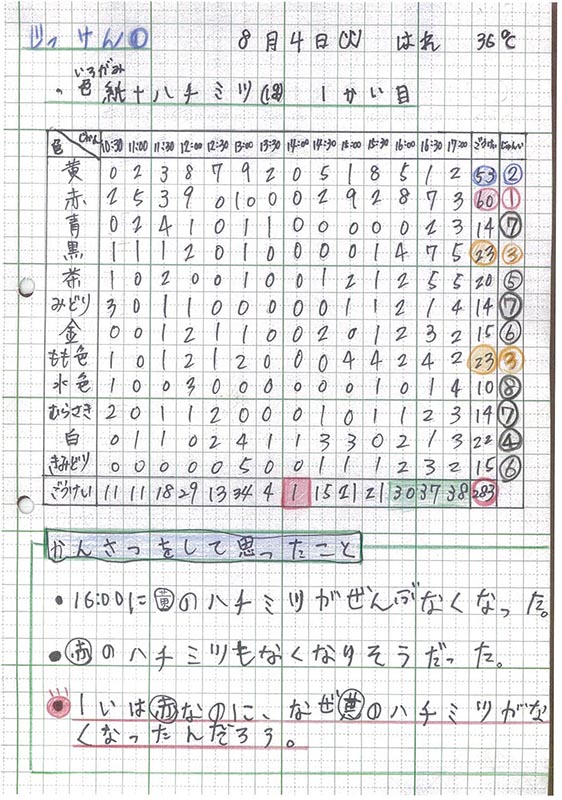 じっけん❶ 8月4日(火) はれ 36℃
いろがみ
・色紙+ハチミツ 1かい目
色 じかん 10:30 11:00 11:30 12:00 12:30 13:00 13:30 14:00 14:30 15:00 15:30 16:00 16:30 17:00 ごうけい じゅんい
黄 0 2 3 8 7 9 2 0 5 1 8 5 1 2 53 ②
赤 2 5 3 9 0 10 0 0 2 9 2 8 7 3 60 ①
青 0 2 4 1 0 1 1 0 0 0 0 0 2 3 14 ⑦
黒 1 1 1 2 0 1 0 0 0 0 1 4 7 5 23 ③
茶 1 0 2 0 0 1 0 0 1 2 1 2 5 5 20 ⑤
みどり 3 0 1 1 0 0 0 0 0 1 1 2 1 4 14 ⑦
金 0 0 1 2 1 1 0 0 2 0 1 2 3 2 15 ⑥
もも色 1 0 1 2 1 2 0 0 0 4 4 2 4 2 23 ③
水色 1 0 0 3 0 0 0 0 0 0 1 0 1 4 10 ⑧
むらさき 2 0 1 1 2 0 0 0 1 0 1 1 2 3 14 ⑦
白 0 1 1 0 2 4 1 1 3 3 0 2 1 3 22 ④
きみどり 0 0 0 0 0 5 0 0 1 1 1 2 3 2 15 ⑥
ごうけい 11 11 18 29 13 34 4 1 15 21 21 30 37 38 283
かんさつをして思ったこと
・16:00に黄のハチミツがぜんぶなくなった。
・赤のハチミツもなくなりそうだった。
・1いは赤なのに、なぜ黄のハチミツがな
くなったんだろう。